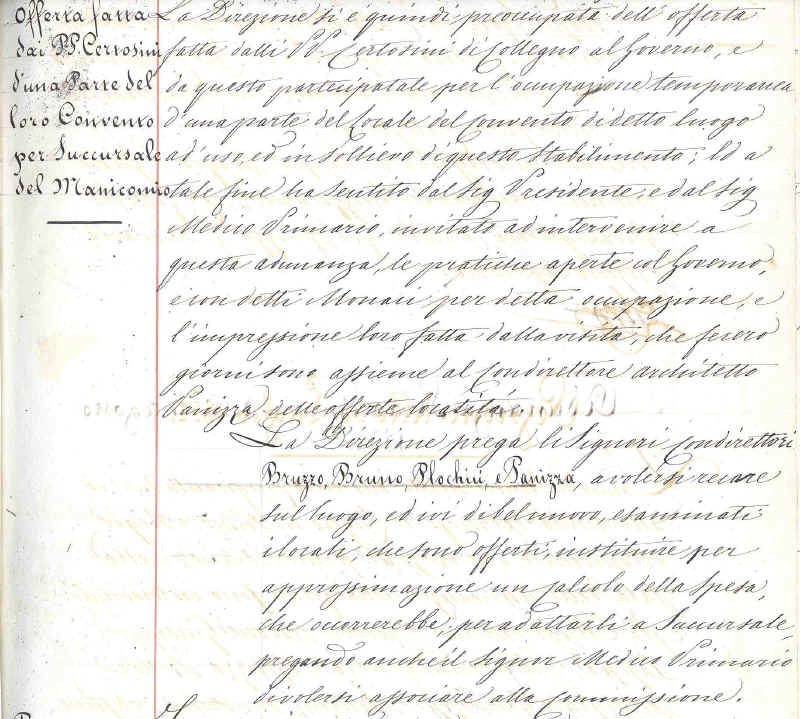 Offerta fatta
dai PP. Certosini
d'una Parte del
loro Convento
per Succursale
del Manicomio
La Direzione si è quindi preocupata dell'offerta
fatta dalli PP. Certosini di Collegno al Governo, e
da questo partecipatale per l'ocupazione temporanea
d'una parte del locale del Convento di detto luogo
ad uso, ed in sollievo di questo Stabilimento; Ed a
tale fine ha sentito dal Sig Presidente, e dal Sig
Medico Primario, invitato ad intervenire a
questa adunanza, le pratiche aperte col Governo,
e con detti Monaci per detta occupazione, e
l'impressione loro fatta dalla visita, che fecero
giorni sono assieme al Condirettore architetto
Panizza delle offerte località.
La Direzione prega li Signori Condirettori
Bruzzo, Bruno, Plochiù, e Panizza, a volersi recare
sul luogo, ed ivi di bel nuovo, esaminati
i locali, che sono offerti, instituire per
approssimazione un calcolo della spesa,
che ocorrerebbe, per adattarli a Succursale,
pregando anche il Signor Medico Primario
di volersi associare alla Commissione.